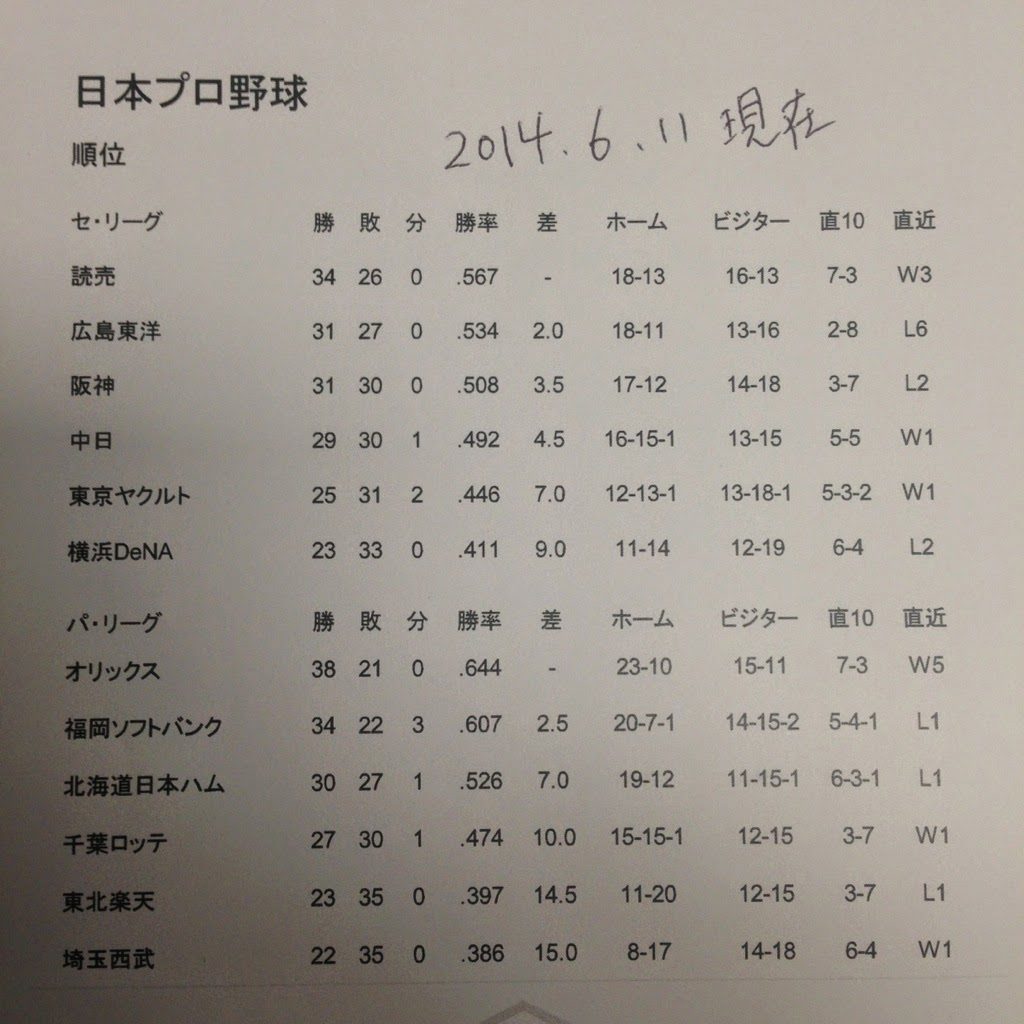 日本プロ野球
2014.6.11 現在
順位
セ・リーグ 勝 敗 分 勝率 差 ホーム ビジター 直10 直近
読売 34 26 0 .567 - 18-13 16-13 7-3 W3
広島東洋 31 27 0 .534 2.0 18-11 13-16 2-8 L6
阪神 31 30 0 .508 3.5 17-12 14-18 3-7 L2
中日 29 30 1 .492 4.5 16-15-1 13-15 5-5 W1
東京ヤクルト 25 31 2 .446 7.0 12-13-1 13-18-1 5-3-2 W1
横浜DeNA 23 33 0 .411 9.0 11-14 12-19 6-4 L2
パ・リーグ 勝 敗 分 勝率 差 ホーム ビジター 直10 直近
オリックス 38 21 0 .644 - 23-10 15-11 7-3 W5
福岡ソフトバンク 34 22 3 .607 2.5 20-7-1 14-15-2 5-4-1 L1
北海道日本ハム 30 27 1 .526 7.0 19-12 11-15-1 6-3-1 L1
千葉ロッテ 27 30 1 .474 10.0 15-15-1 12-15 3-7 W1
東北楽天 23 35 0 .397 14.5 11-20 12-15 3-7 L1
埼玉西武 22 35 0 .386 15.0 8-17 14-18 6-4 W1